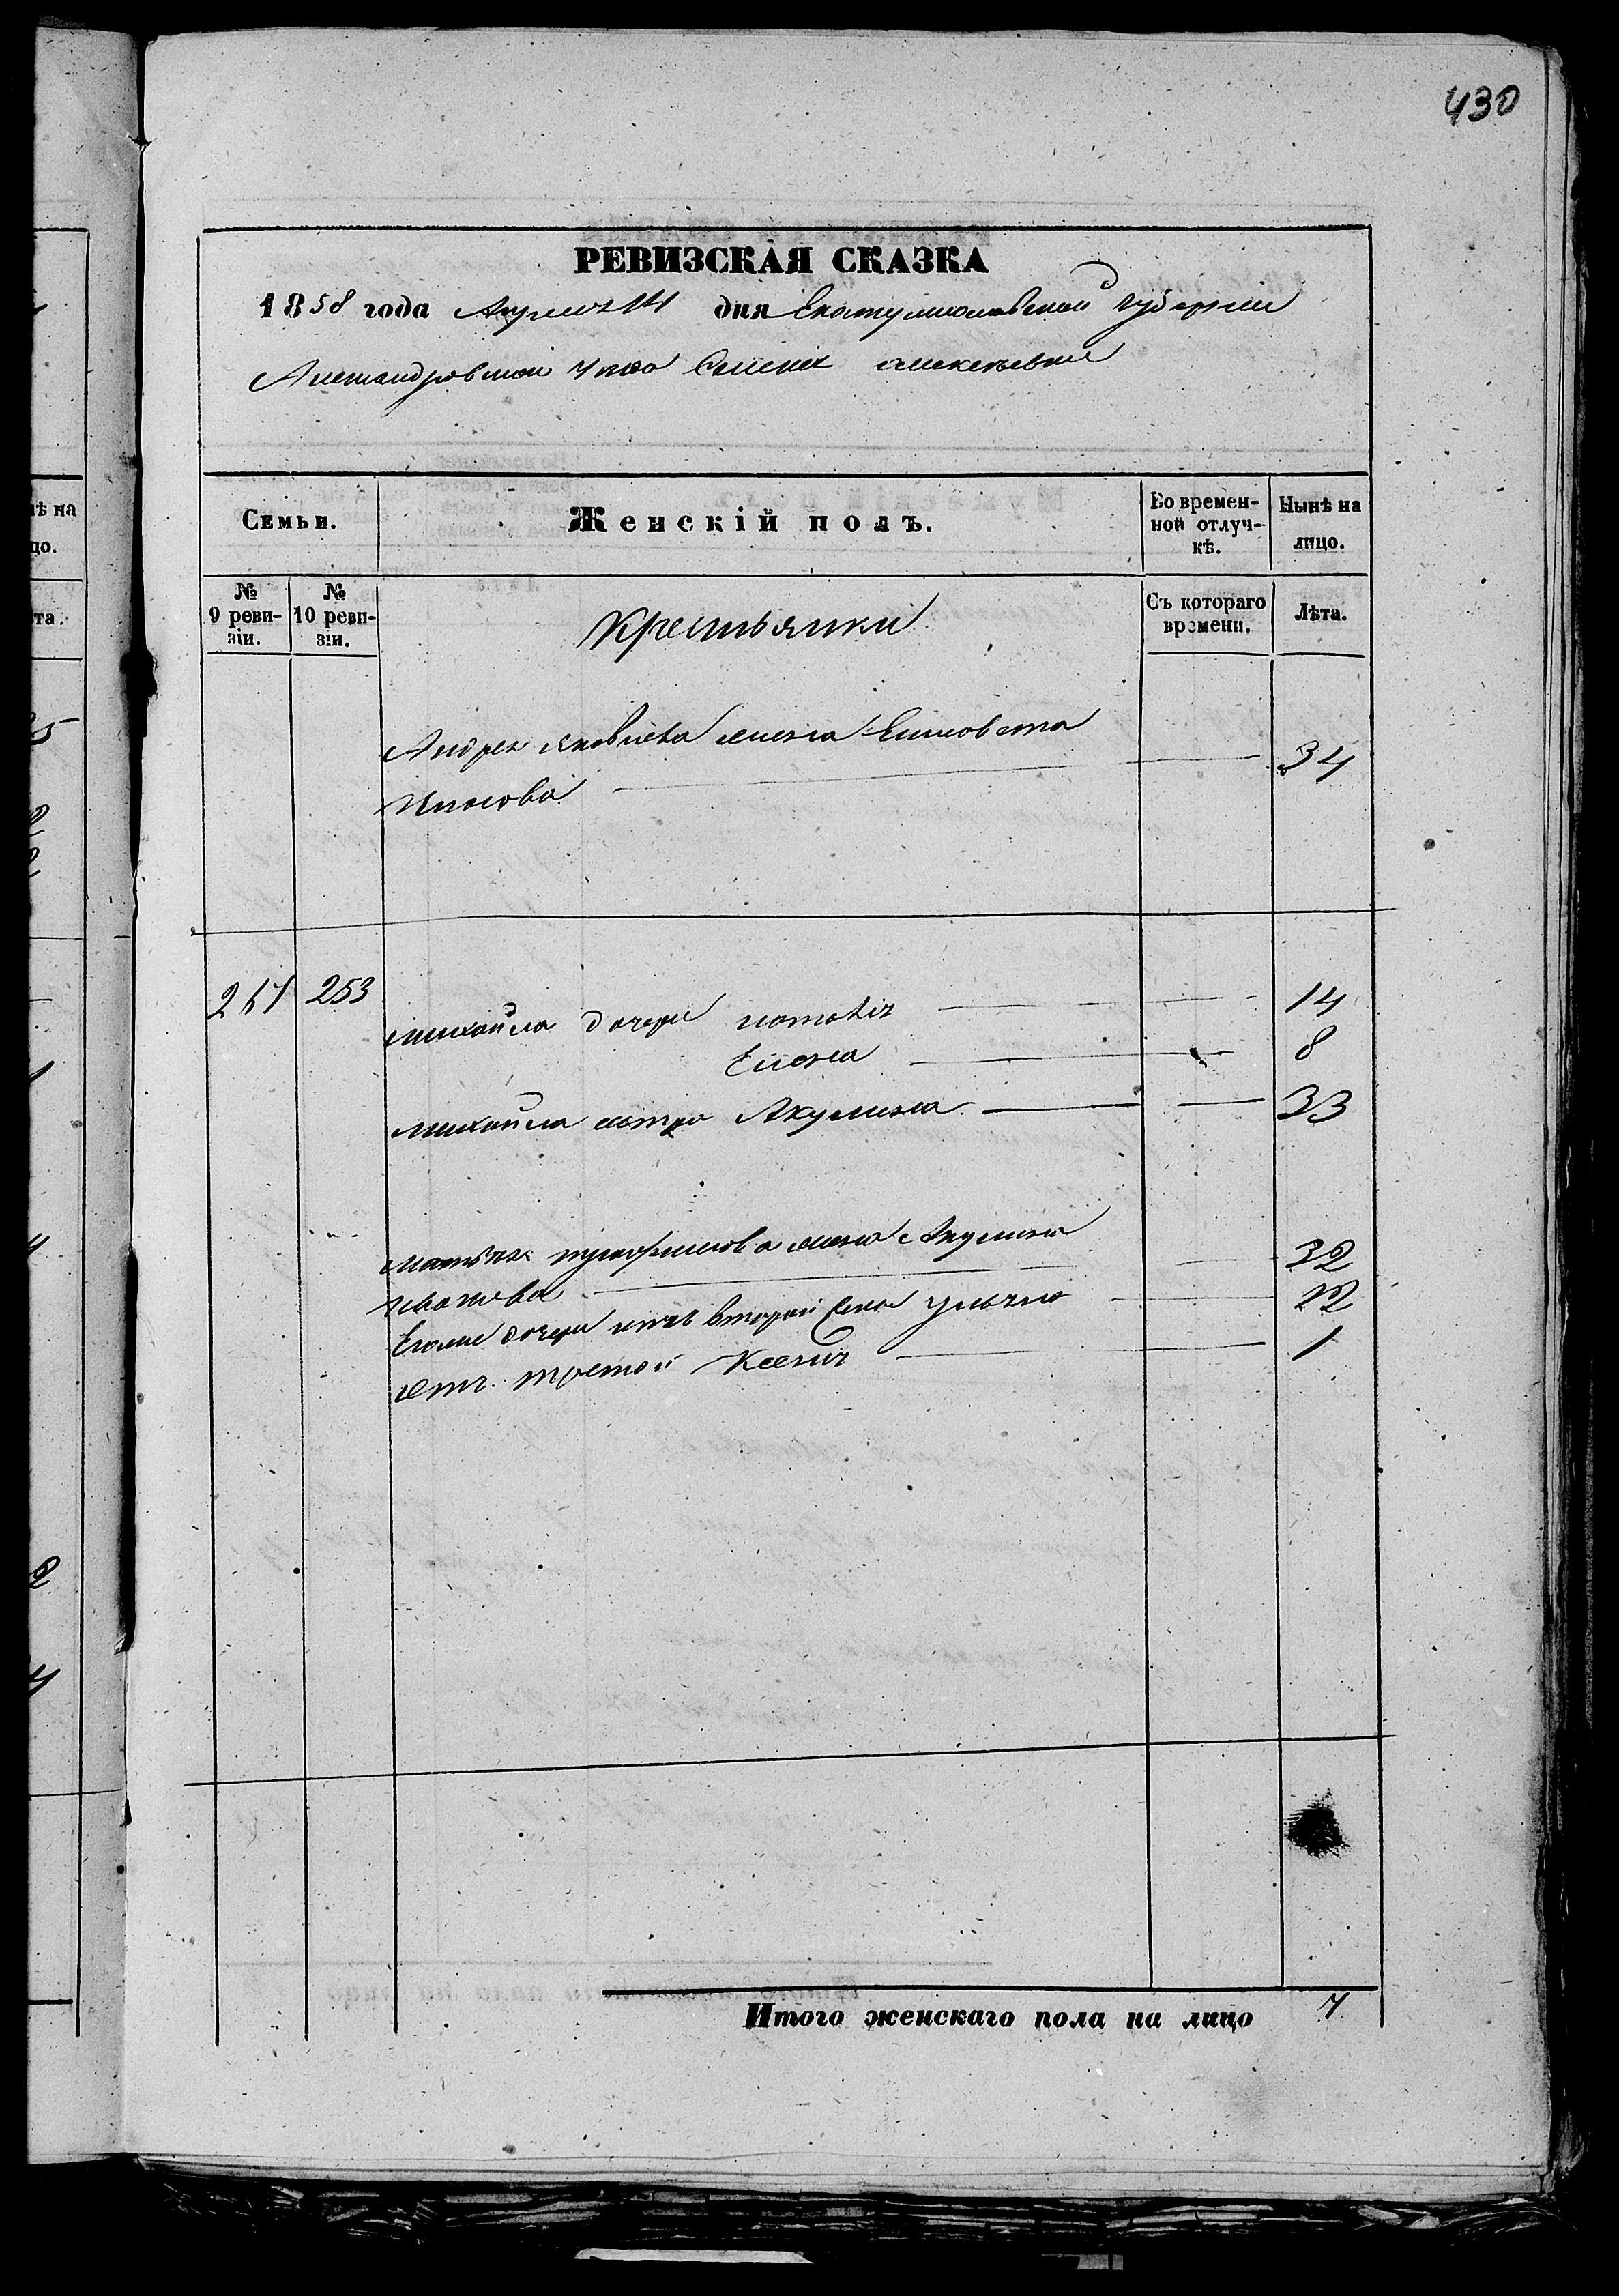 430
РЕВИЗСКАЯ СКАЗКА
1858 года Апреля 14 дня Екатеринославской губернии
Александровскаго уезда Селения
Семьи.
Женскій полъ.
Во времен-
ной отлуч-
кѣ.
Нынѣ на
лицо.
№
9 реви-
зіи.
№
10 реви-
зіи.
Крестьянки
Съ котораго
времени.
Лѣта.
Андрея Яковлева жена Елисовета
34
267 253
Михайла дочери 14
Елена 8
Михайла сестра Акулина 33
жена Акулина
Иванова 32
дочери отъ второй Ульяна 22
отъ третой Ксения 1
Итого женскаго пола на лицо 7